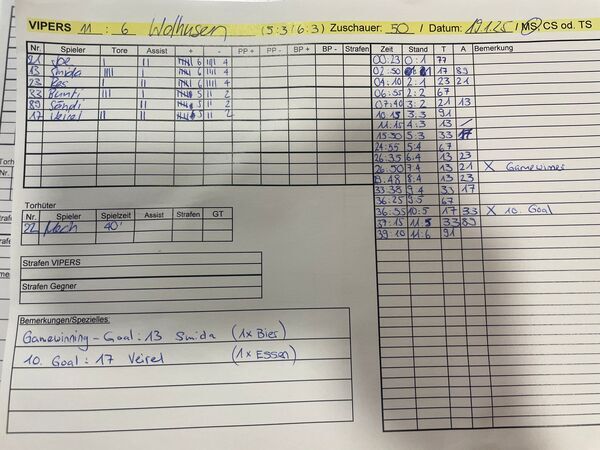 VIPERS 11 : 6 Wolhusen (5:3/6:3) Zuschauer: 50 / Datum: 19.1.25 / MS, CS od. TS
Nr. Spieler Tore Assist + - PP + PP - BP + BP - Strafen
21 Joe I II 6 4
13 Smida IIII I 6 4
23 Res I III 6 4
33 Bunti III I 5 2
89 Sändi II 5 2
17 Veirel II II 5 2
Zeit Stand T A Bemerkung
00:23 0:1 77
02:50 1:1 17 89
04:10 2:1 23 21
06:55 2:2 67
07:40 3:2 21 13
10:15 3:3 91
11:15 4:3 13 /
15:30 5:3 33 17
24:55 5:4 67
26:35 6:4 13 23
26:50 7:4 13 21 X Gamewinner
29:48 8:4 13 23
33:38 9:4 33 17
36:25 9:5 67
36:55 10:5 17 33 X 10. Goal
37:15 11:5 33 89
39:10 11:6 91
Torhüter
Nr. Spieler Spielzeit Assist Strafen GT
22 Mach 40'
Strafen VIPERS
Strafen Gegner
Bemerkungen/Spezielles:
Gamewinning-Goal: 13 Smida (1x Bier)
10. Goal: 17 Veirel (1x Essen)